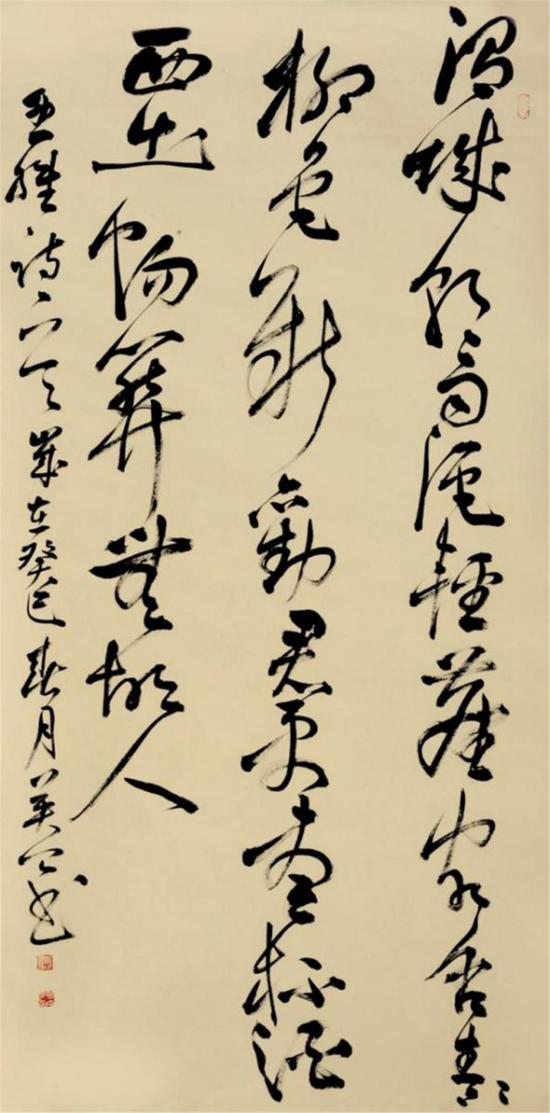 渭城朝雨浥輕塵客舍青〻
柳色新勸君更盡一杯酒
西出陽關無故人
王維詩一首歲在癸巳春月書